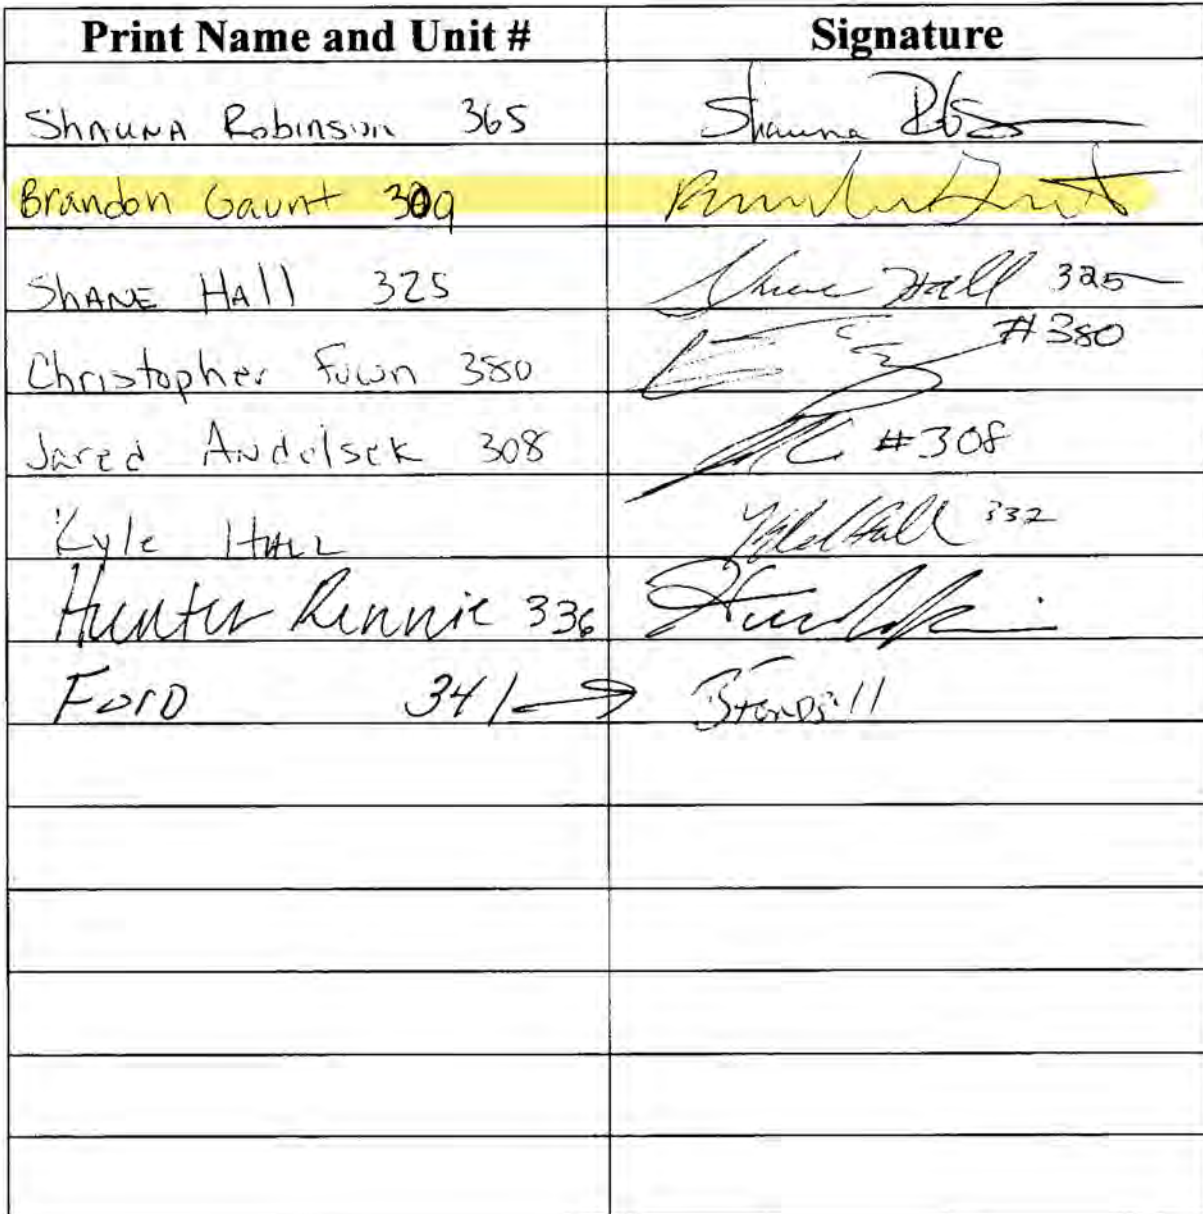 Print Name and Unit # Signature
Shauna Robinson 365 Shauna
Brandon Gaunt 309
Shane Hall 325 Shane Hall 325
Christopher 380 #380
Jared Andelsek 308 #308
Kyle Hall Kyle Hall 332
Hunter Rennie 336
Ford 341